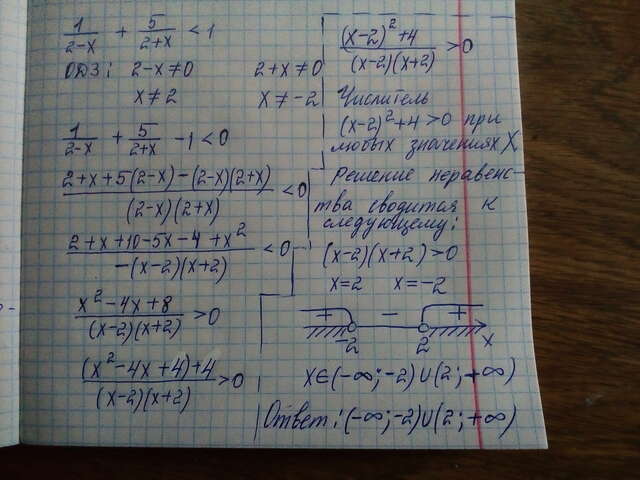 1/(2-x) + 5/(2+x) < 1
ОДЗ: 2-x≠0 2+x≠0
x≠2 x≠-2
1/(2-x) + 5/(2+x) - 1 < 0
(2+x+5(2-x)-(2-x)(2+x))/((2-x)(2+x)) < 0
(2+x+10-5x-4+x²)/(-(x-2)(x+2)) < 0
(x²-4x+8)/((x-2)(x+2)) > 0
((x²-4x+4)+4)/((x-2)(x+2)) > 0
((x-2)²+4)/((x-2)(x+2)) > 0
Числитель
(x-2)²+4>0 при
любых значениях X.
Решение неравенс-
тва сводится к
следующему:
(x-2)(x+2)>0
x=2 x=-2
+ - +
-2 2 x
x∈(-∞;-2)∪(2;+∞)
Ответ: (-∞;-2)∪(2;+∞)